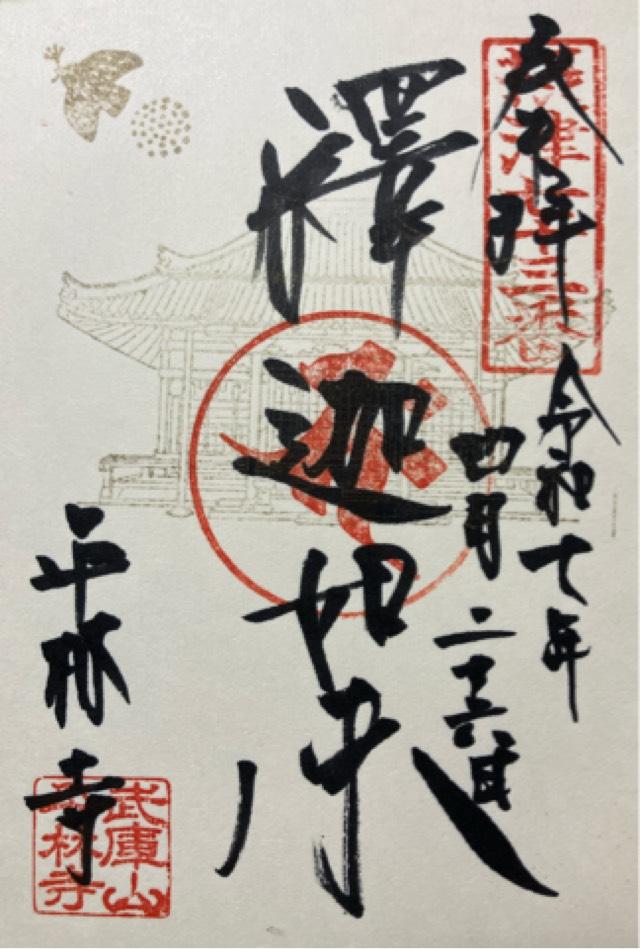 奉拝
攝津七十三番
令和七年
四月二十六日
釋迦如来
平林寺
武庫山
平林寺